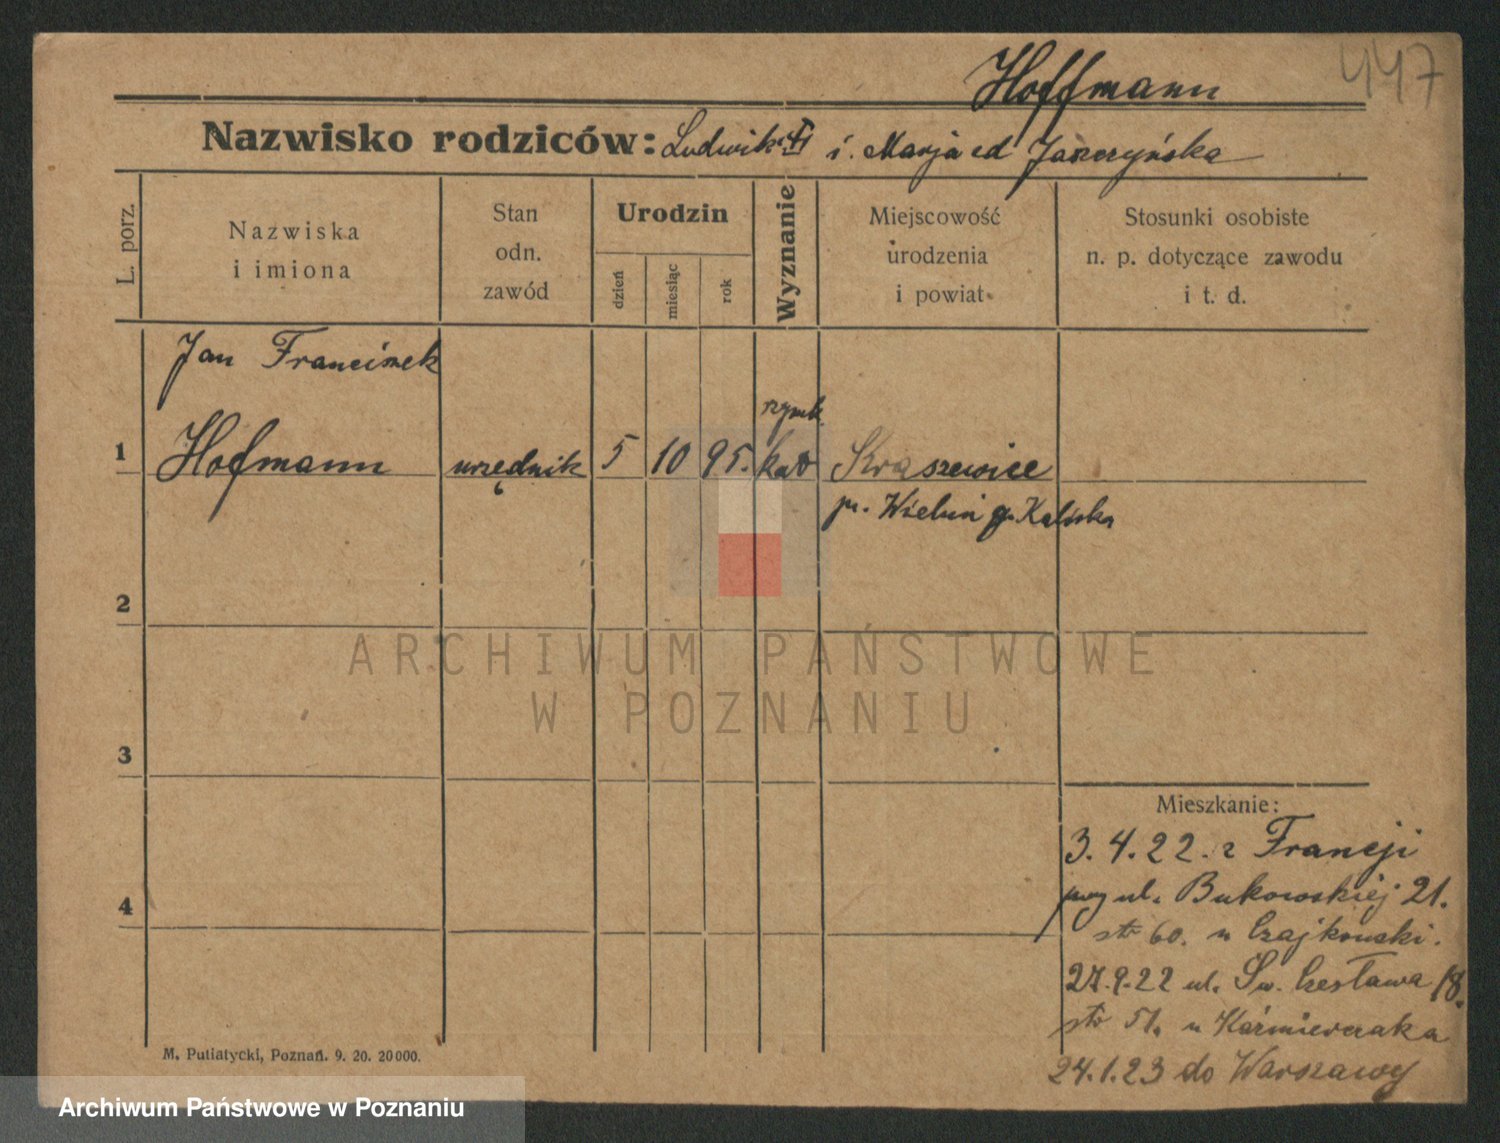 Hoffmann
447
Nazwisko rodziców: Ludwik i. Marja ed Janczyńska
L. porz.
Nazwiska
i imiona
Stan
odn.
zawód
Urodzin
dzień
miesiąc
rok
Wyznanie
Miejscowość
urodzenia
i powiat
Stosunki osobiste
n. p. dotyczące zawodu
i t. d.
Jan Franciszek
1 Hofmann urzędnik 5 10 95. rzymk. kat Kraszewice
p. Wieluń g. Kaliska
2
ARCHIWUM PAŃSTWOWE
W POZNANIU
3
Mieszkanie:
3.4.22. z Francji
przy ul. Bukowskiej 21.
str 60. u Czajkowski.
27.9.22 ul. Św. Czesława 18.
str 51. u Kaźmierczaka
24.1.23 do Warszawy
4
M. Putiatycki, Poznań. 9. 20. 20000.
Archiwum Państwowe w Poznaniu